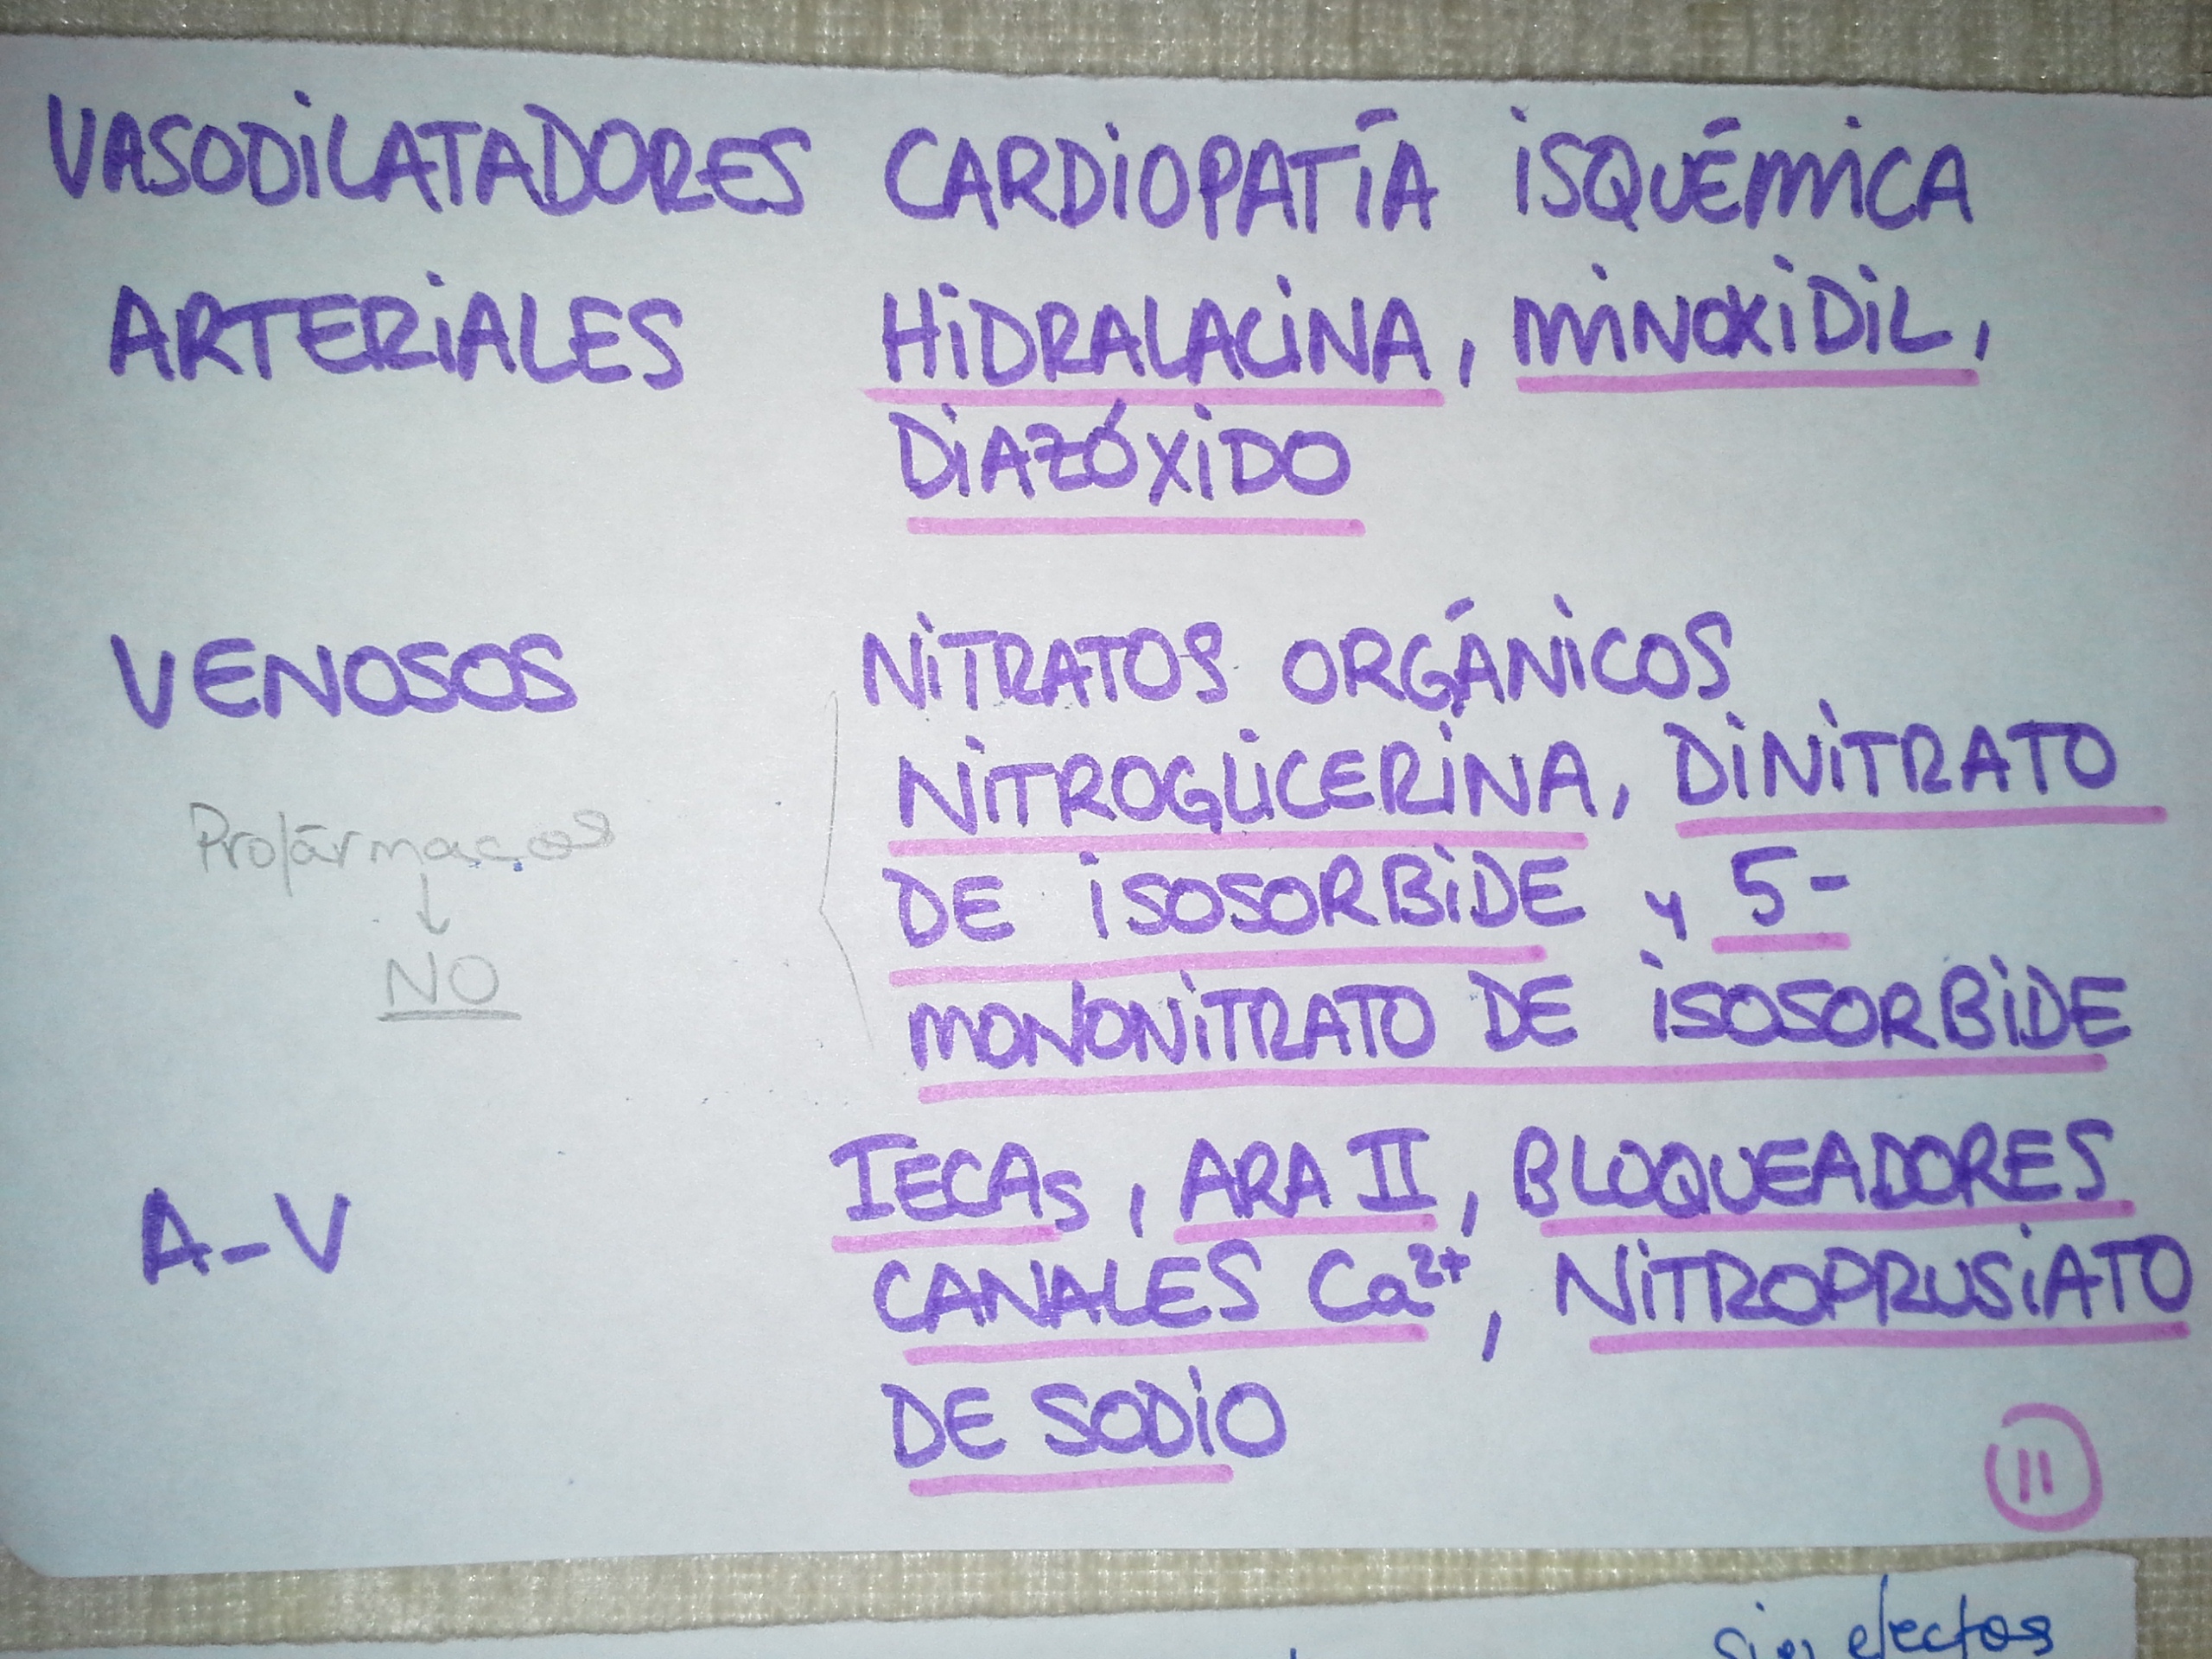 VASODILATADORES CARDIOPATÍA ISQUÉMICA
ARTERIALES HIDRALACINA, MINOXIDIL,
DIAZÓXIDO
VENOSOS NITRATOS ORGÁNICOS
NITROGLICERINA, DINITRATO
Profármacos
DE ISOSORBIDE y 5-
↓
NO
MONONITRATO DE ISOSORBIDE
A-V IECAs, ARA II, BLOQUEADORES
CANALES Ca²⁺, NITROPRUSIATO
DE SODIO
11
sin efectos